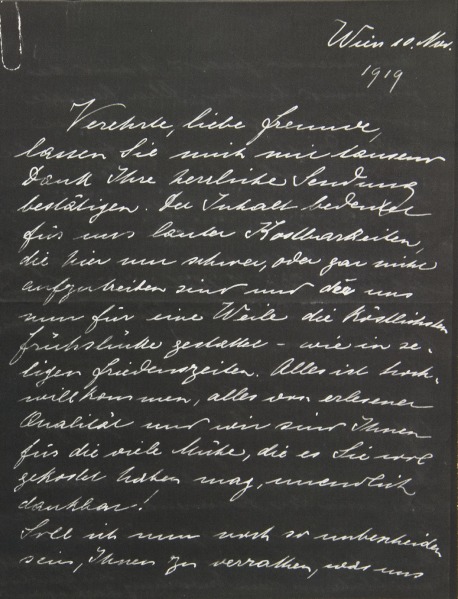 Wien 20. Nov.
1919
Verehrte, liebe Freunde,
lassen Sie mich mit tausend
Dank Ihre herrliche Sendung
bestätigen. Der Inhalt bedeutet
für uns lauter Kostbarkeiten,
die hier nur schwer, oder gar nicht
aufzutreiben sind und der uns
nun für eine Weile die köstlichsten
Frühstücke gestattet – wie in se-
ligen Friedenszeiten. Alles ist hoch-
willkommen, alles von erlesener
Qualität und wir sind Ihnen
für die viele Mühe, die es Sie wol
gekostet haben mag, unendlich
dankbar!
Soll ich nun noch so unbescheiden
sein, Ihnen zu verrathen, was uns